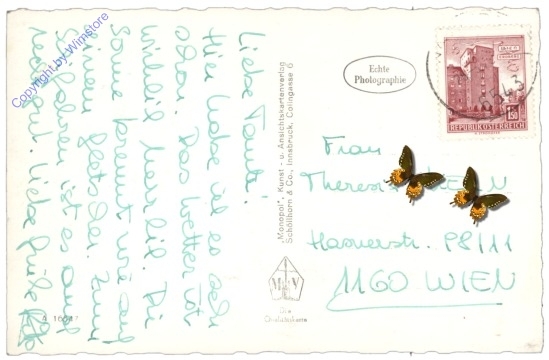 Copyright by Wimstore
Liebe Tanti!
Hier habe ich es sehr
schön. Das Wetter ist
wirklich herrlich. Die
Sonne brennt wie auf
einem Gletscher. Zum
Schifahren ist es auch
recht gut. Liebe Grüße
A 16527
"Monopol", Kunst - u. Ansichtskartenverlag
Schöllhorn & Co., Innsbruck, Colingasse 6
Echte
Photographie
M V
Die
Qualitätskarte
REPUBLIK ÖSTERREICH
1.50
Frau
Therese
Hasnerstr. 98/11
1160 WIEN